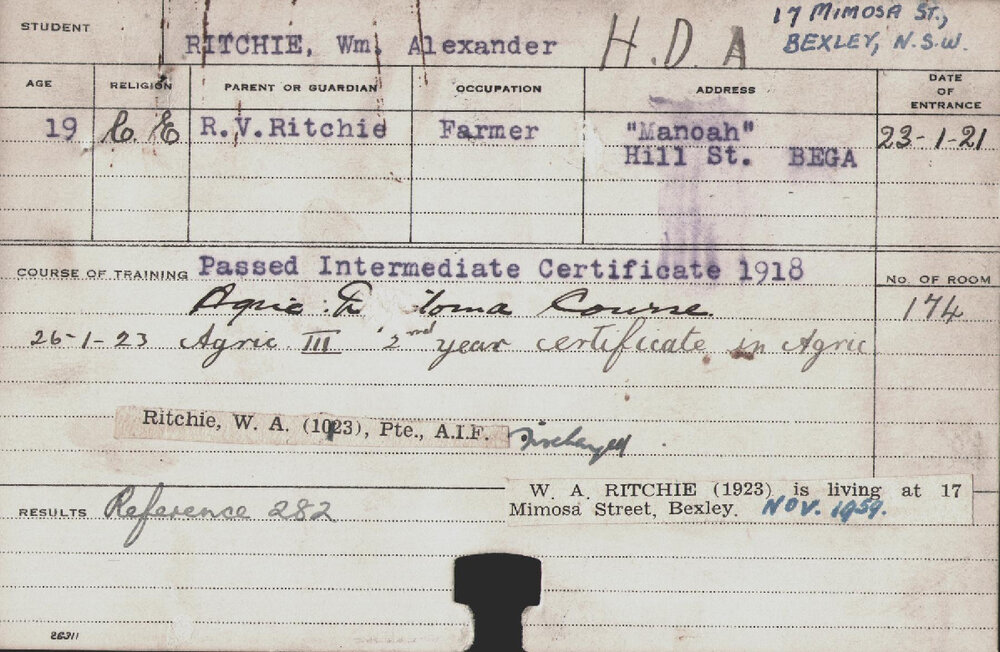 STUDENT RITCHIE, Wm. Alexander H.D.A 17 MIMOSA ST.,
BEXLEY, N.S.W.
AGE RELIGION PARENT OR GUARDIAN OCCUPATION ADDRESS DATE OF ENTRANCE
19 C.E R.V.Ritchie Farmer "Manoah" 23-1-21
Hill St. BEGA
COURSE OF TRAINING Passed Intermediate Certificate 1918 No. OF ROOM
Agric. Course. 174
26-1-23 Agric III 2nd year certificate in Agric
Ritchie, W. A. (1923), Pte., A.I.F. Discharged.
W. A. RITCHIE (1923) is living at 17
Mimosa Street, Bexley. NOV. 1959.
RESULTS Reference 282
26311